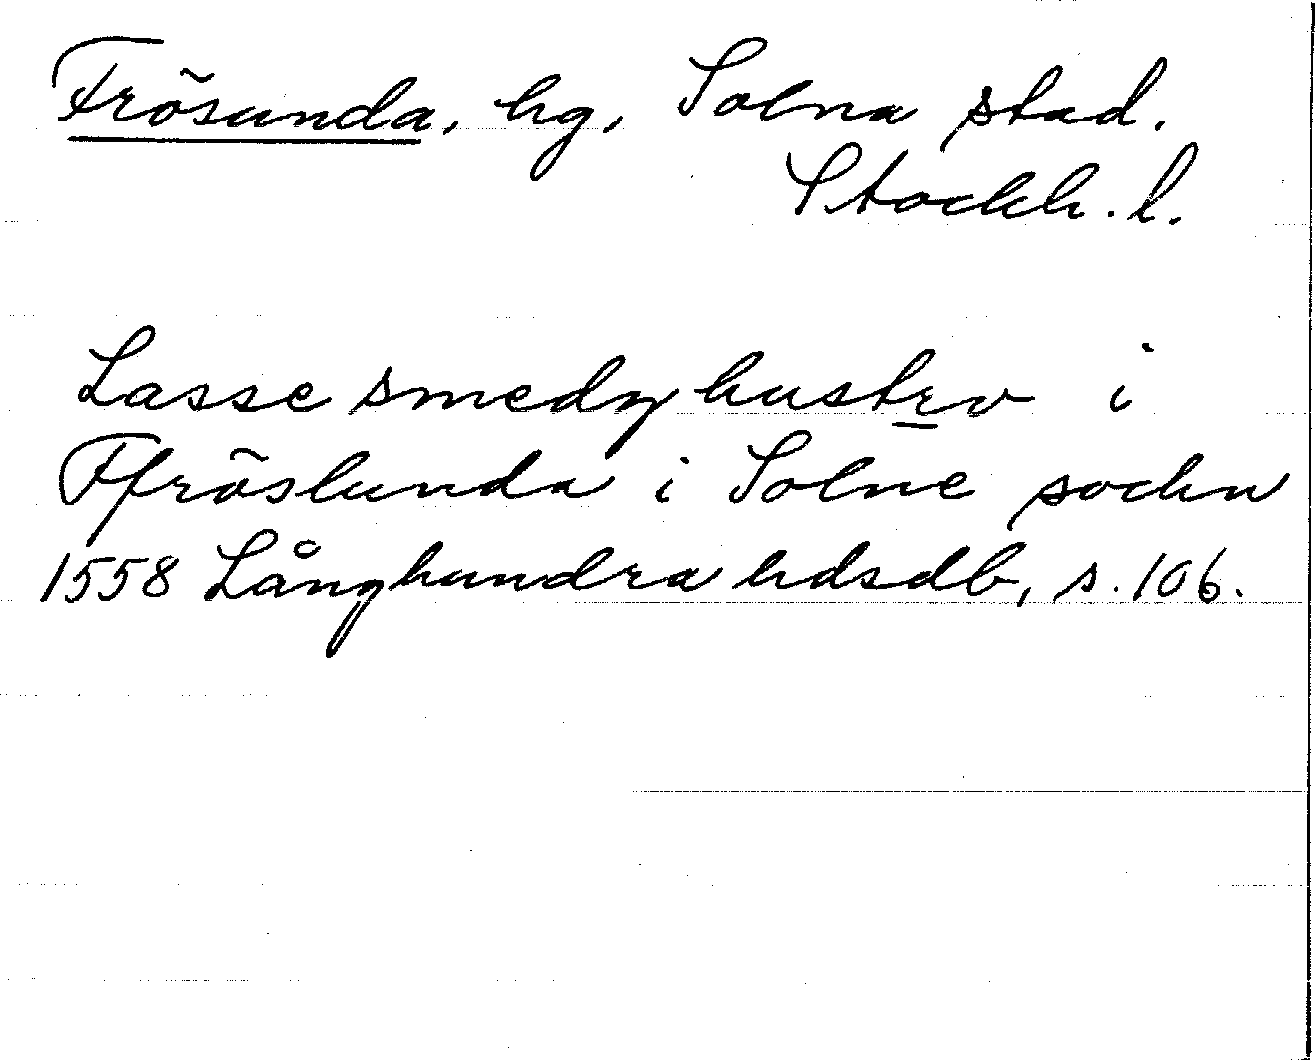 Frösunda, hg, Solna stad.
Stockh. l.
Lasse smedz hustrv i
Ffröslunda i Solne sockn
1558 Långhundra hdsdb, s. 106.